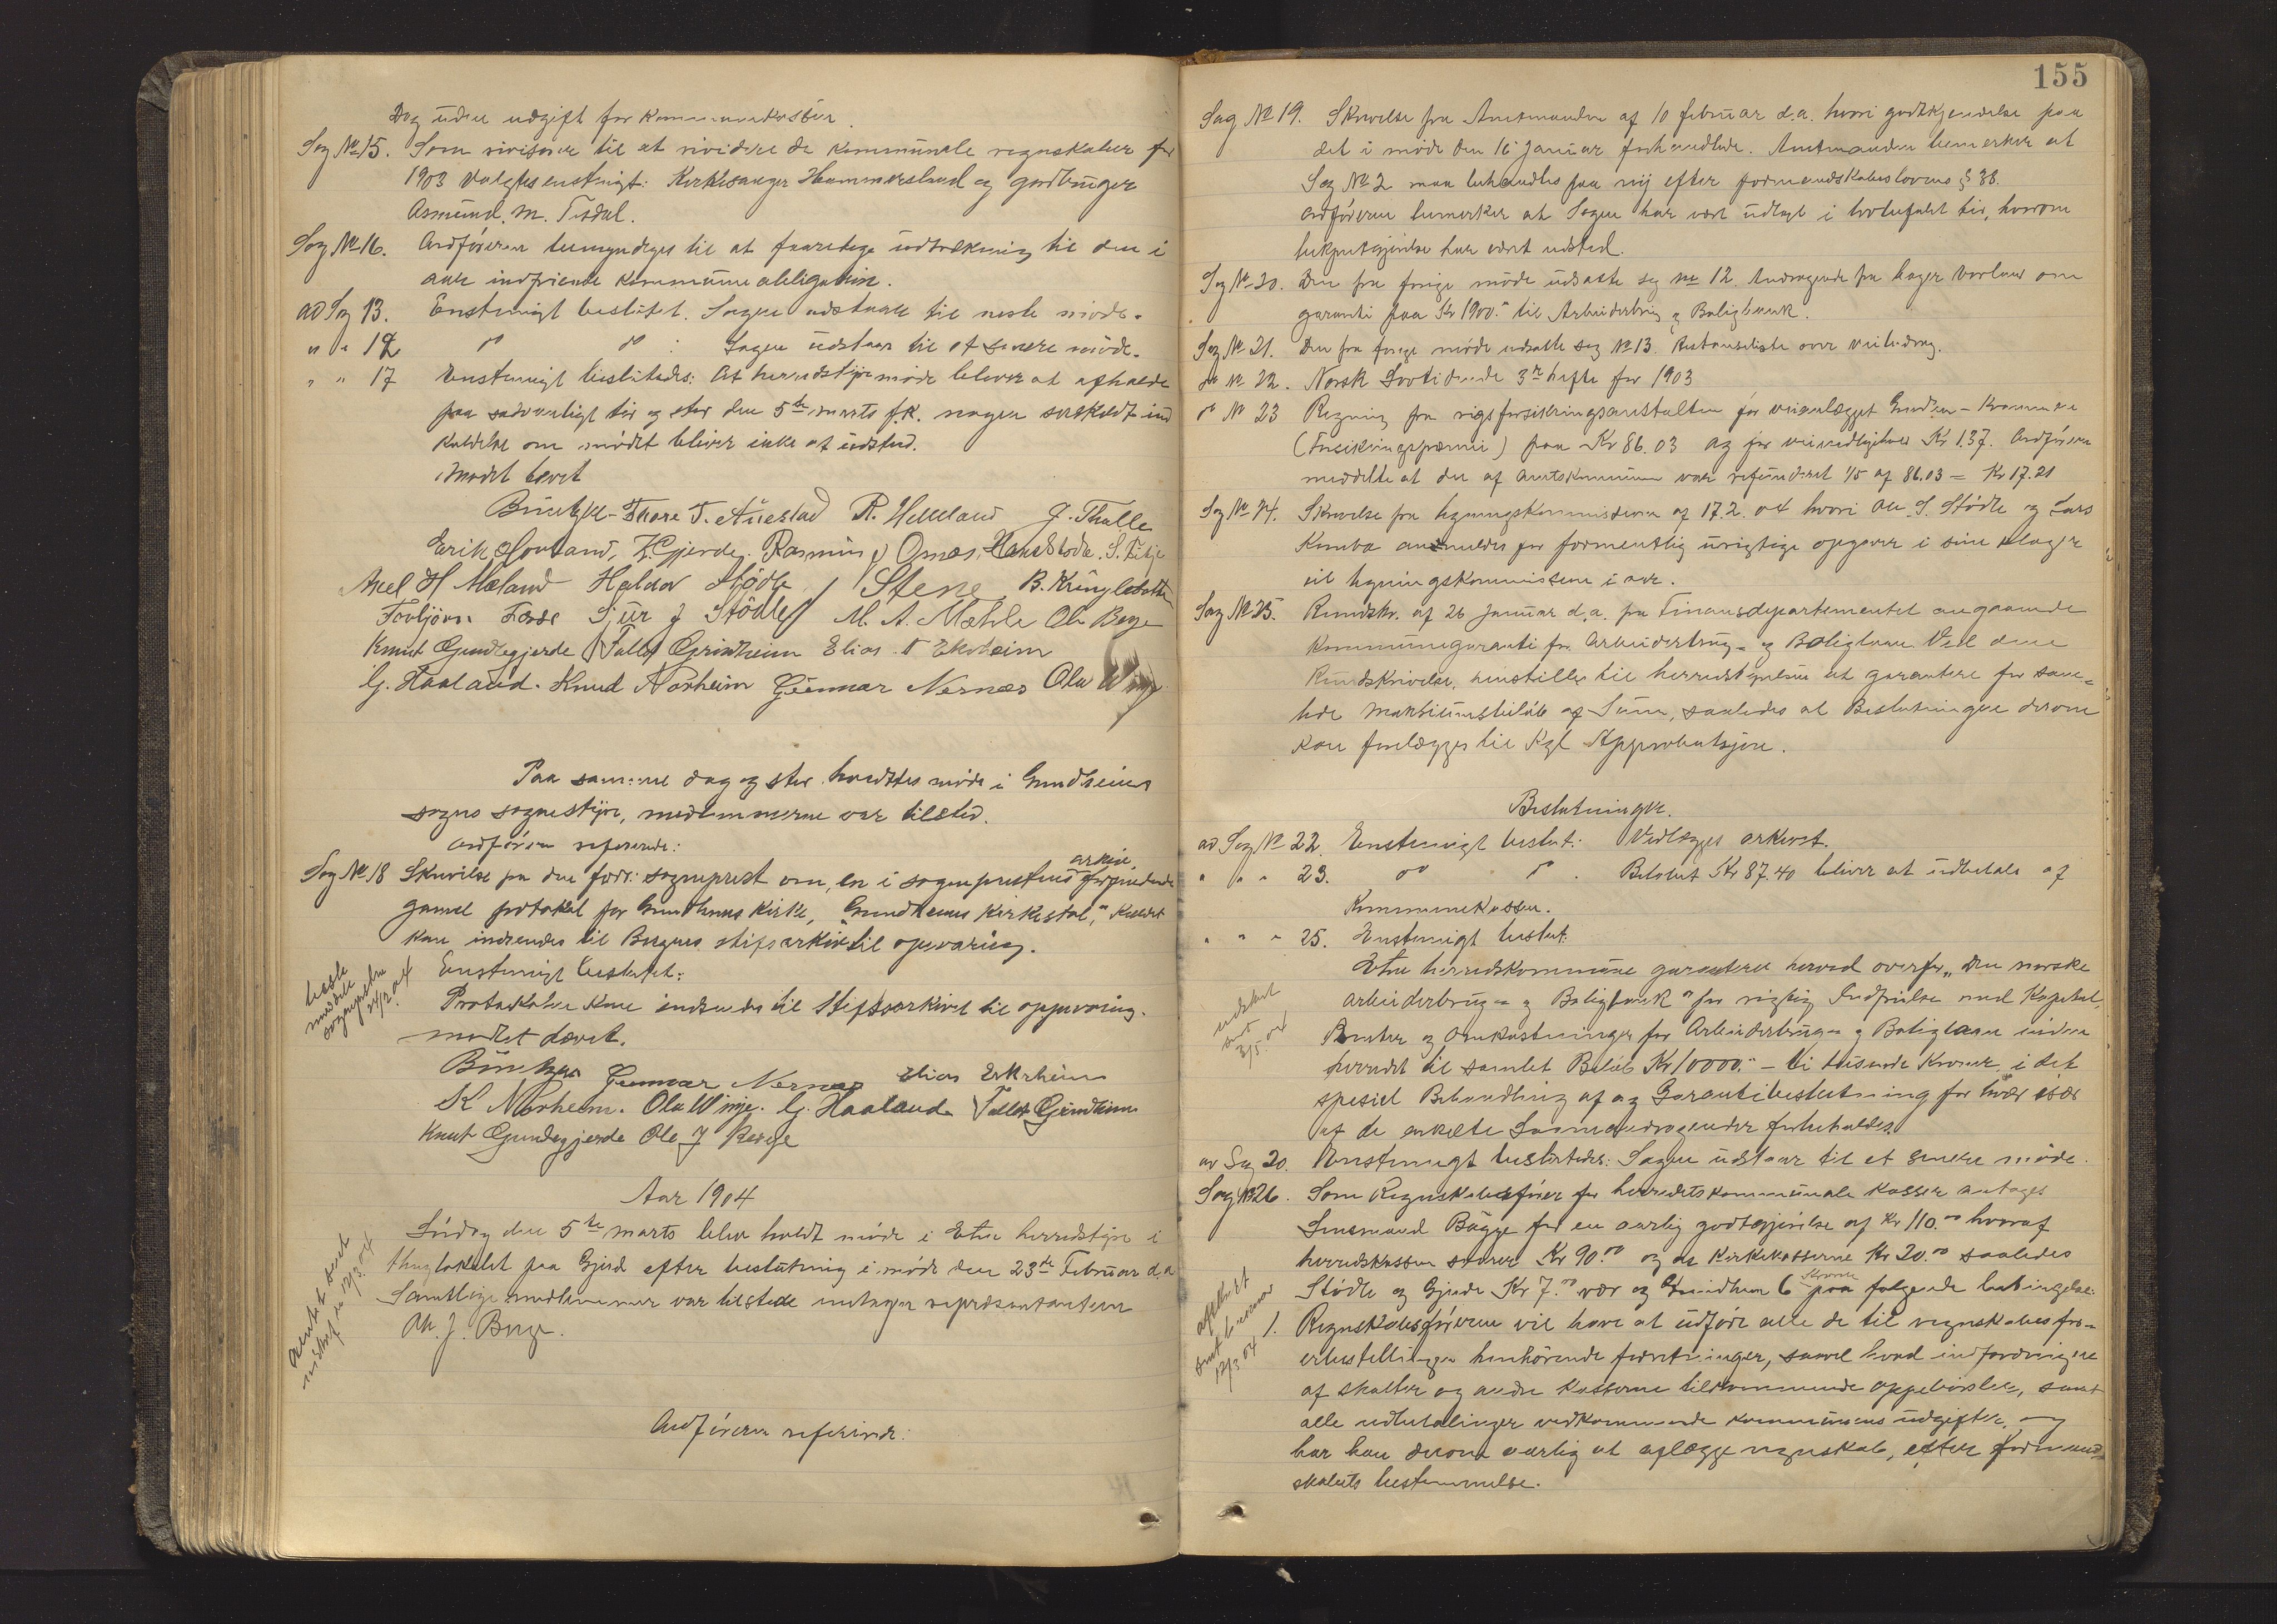 Dog uden udgift for kommunekassen
Sag № 15. Som revisorer til at revidere de kommunale regnskaber for
1903 valgtes enstemigt: Kirkesanger Hammersland og gardbruger
Asmund M. Tesdal.
Sag № 16. Ordføreren bemyndiges til at foaretage udtrækning til den i
aar indfriende kommuneobligation.
ad Sag 13. Enstemigt beslutet. Sagen udstaar til neste møde.
" " 12 do do : Sagen udstaar til et senere møde.
" " 17 Enstemigt beslutedes: At herredstyremøde bliver at afholde
paa sedvanligt tid og sted den 5te marts f.k. nogen serskildt ind
kaldelse om mødet bliver ikke at udsted.
Mødet hævet
Büntzen Thore T. Auestad R. Helleland J. Thalle
Erik Hovland, K. Gjerde. Rasmus J Osnes, Hans Stødle. S. Fitje
Axel H Mæland Haldor Stödle Stene B. Kringlebotten
Torbjörn Færås Sjur J Stödle M. A. Mæhle Ole Berge
Knut Grindegjerde Tallef Grindheim Elias Ekrheim
G. Haaland. Knud Norheim Gunnar Nernæs Ola Winje
Paa samme dag og sted holdtes møde i Grindheims
sogns sognestyre, medlemmerne var tilsted.
Ordføreren refererede:
arkiv
Sag № 18 Skrivelse fra den fhv: sogneprest om, en i sogneprestens forefindende
gamel protokol for Grindheims Kirke, "Grindheims Kirkestol," kaldet
kan indsendes til Bergens stifsarkiv til opevaring.
Enstemigt beslutet:
Protokollen kan indsendes til Stiftsarkivet til oppevaring.
mødet hævet.
Büntzen Gunnar Nernæs Elias Ekrheim
K Norheim. Ola Winje. G. Haaland Tallef Grindheim
Knut Grindegjerde Ole J Berge
Aar 1904
Lørdag den 5te marts blev holdt møde i Etne herredstyre i
thinglokalet paa Gjerde efter beslutning i møde den 23de Februar d.a
Samtlige medlemmer var tilstede undtagen representanten
Ole J. Berge.
Ordføreren refererede:
155
Sag № 19. Skrivelse fra Amtmanden af 10 februar d.a. hvori godkjendelse paa
det i møde den 16 januar forhandlede. Amtmanden bemerker at
Sag № 2 maa behandles paa nÿ efter formandskabslovens § 38.
Ordføreren bemerker at Sagen har vært udlagt i lovbefalet tid, hvorom
bekjentgjørelse har været udsted.
Sag № 20. Den fra forige møde udsatte sag № 12. Andragende fra om
garanti paa Kr 1900.- til Arbeiderbrug og Boligbank.
Sag № 21. Den fra forige møde udsatte sag № 13. Restanseliste over veibidrag.
do № 22. Norsk Lovtidende 3de hefte for 1903
do № 23 Regning fra rigsforsikringsanstalten for veianlægget Grindheim - Kvamme
(Forsikringspræmie) paa Kr 86.03 og for veivedligehold Kr 1.37. Ordføreren
meddelte at der af amtskommunen var refunderet 1/5 af 86.03 = Kr 17.21
Sag № 24. Skrivelse fra ligningskommisionen af 17.2.04 hvori Ole S. Stødle og Lars
anmeldes for formentlig urigtige opgaver i sine klager
til ligningskommisionen i aar.
Sag № 25. Rundskr. af 26 Januar d.a. fra Finansdepartementet angaaende
kommunegaranti for Arbeiderbrug- og Boliglaan. Ved denne
Rundskrivelse henstilles til herredstyrelsen at garantere for sam-
lede maksimumsbeløb af Sum, saaledes at Beslutningen derom
kan forelægges til Kgl Approbatsjon.
Beslutninger.
ad Sag № 22. Enstemigt beslut: Vedlægges arkivet.
" " " 23. do do . Beløbet Kr 87.40 bliver at udbetale af
Kommunekassen.
" " " 25. Enstemigt beslut:
Etne herredskommune garanterer herved overfor "Den norske
arbeiderbrug- og Boligbank" for rigtig Indfrielse med Kapital,
Renter og Omkostninger for Arbeiderbrug- og Boliglaan inden
herredet til samlet Beløb Kr 10000.- - ti tusinde Kroner, i det
spesiel Behandling af og Garantibeslutning for hvær især
af de enkelte Laaneandragender forbeholdes.
ad Sag 20. Enstemigt beslutedes: Sagen udstaar til et senere møde.
Sag № 26. Som Regnskabsfører for herredets kommunale kasser antages
Lensmand Bügge for en aarlig godtgjørelse af Kr 110.00 hvoraf
herredskassen svarer Kr 90.00 og de Kirkekasserne Kr 20.00 saaledes
Kroner
Stødle og Gjerde Kr 7.00 vær og Grindheim 6 paa følgende betingelse:
1. Regnskabsføreren vil have at udføre alle de til regnskabsfør-
erbestillingen henhørende forretninger, saavel hvad indfordringen
af skatter og andre kasserne tilkommende oppebørsler, samt
alle udbetalinger vedkommende kommunens udgifter, og
har han derom aarlig at aflægge regnskab, efter formand-
skabets bestemmelse.